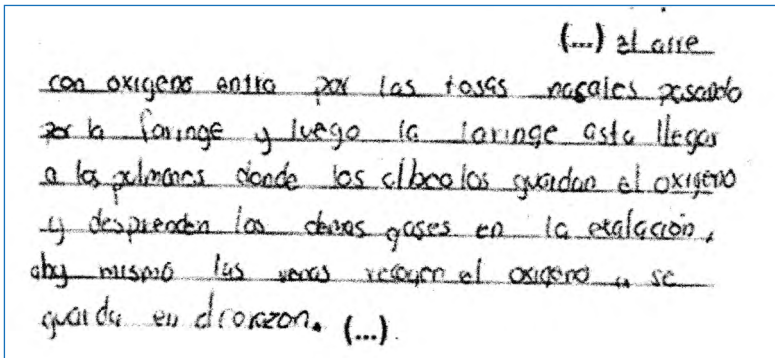 (...) el aire
con oxigeno entra por las fosas nasales pasando
por la faringe y luego la laringe asta llegar
a los pulmones donde los albeolos guardan el oxigeno
y desprenden los demas gases en la exalación,
ahy mismo las venas recogen el oxigeno y se
guarda en el corazon. (...)